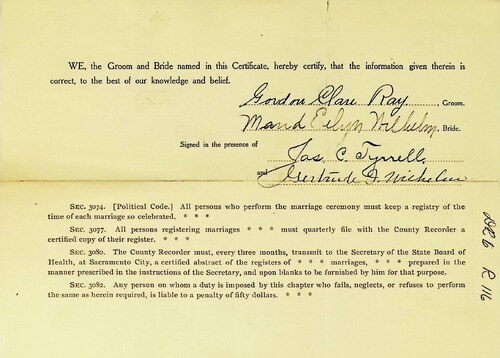 WE, the Groom and Bride named in this Certificate, hereby certify, that the information given therein is
correct, to the best of our knowledge and belief.
Gordon Clare Ray, Groom.
Maud Evelyn Wilhelm, Bride.
Signed in the presence of
Jas. C. Tyrrell
and Gertrude I. Wilhelm
SEC. 3074. [Political Code.] All persons who perform the marriage ceremony must keep a registry of the
time of each marriage so celebrated. * * *
SEC. 3077. All persons registering marriages * * * must quarterly file with the County Recorder
a certified copy of their register. * * *
SEC. 3080. The County Recorder must, every three months, transmit to the Secretary of the State Board of
Health, at Sacramento City, a certified abstract of the registers of * * * marriages, * * * prepared in the
manner prescribed in the instructions of the Secretary, and upon blanks to be furnished by him for that purpose.
SEC. 3082. Any person on whom a duty is imposed by this chapter who fails, neglects, or refuses to perform
the same as herein required, is liable to a penalty of fifty dollars. * * *
6 R 116